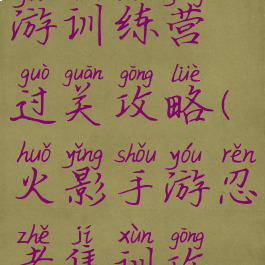 游训练营
guò guān gōng lüè
过关攻略(
huǒ yǐng shǒu yóu rěn
火影手游忍
zhě jí xùn gōng
者集训攻